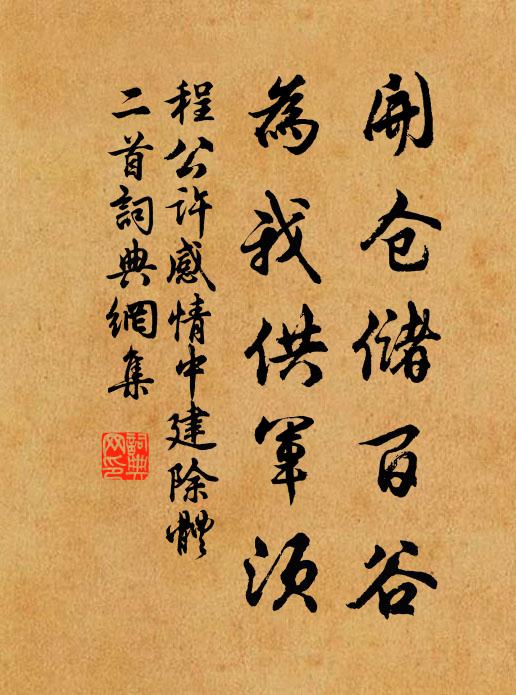 開仓儲百谷
為我供軍須
程公许感情中建除體
二首詞典網集
詞典
网印